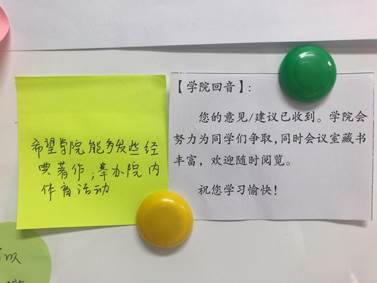 希望学院能多发些经
典著作；举办院内
体育活动
【学院回音】：
您的意见/建议已收到。学院会
努力为同学们争取，同时会议室藏书
丰富，欢迎随时阅览。
祝您学习愉快！
以